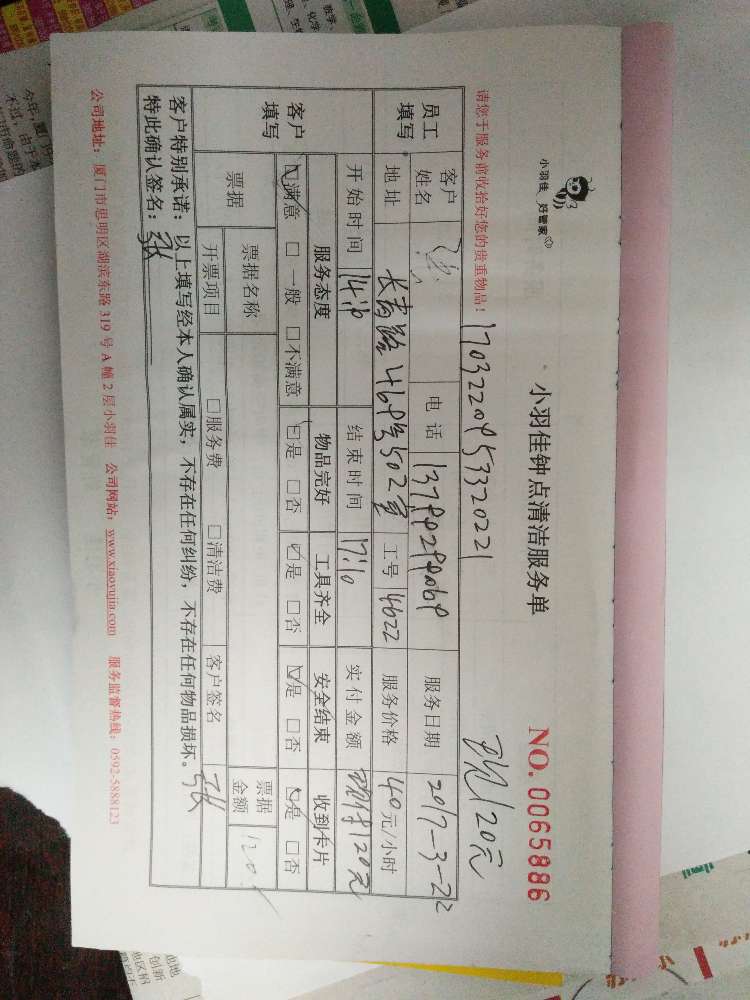 小羽佳 好管家
小羽佳钟点清洁服务单
NO. 0065886
请您于服务前收拾好您的贵重物品!
1703220953320221
现120元
员工填写
客户姓名
张
电话
服务日期
2017-3-22
地址
长青路469号502室
工号
4622
服务价格
40元/小时
开始时间
14:10
结束时间
17:10
实付金额
120元
客户填写
服务态度
物品完好
工具齐全
安全结束
收到卡片
☑满意 □一般 □不满意
☑是 □否
☑是 □否
☑是 □否
☑是 □否
票据
票据名称
票据金额
120
开票项目
□服务费 □清洁费
客户签名
张
客户特别承诺:以上填写经本人确认属实,不存在任何纠纷,不存在任何物品损坏。张
特此确认签名:张
公司地址:厦门市思明区湖滨东路319号A幢2层小羽佳 公司网站:www.xiaoyujia.com 服务监督热线:0592-5888123